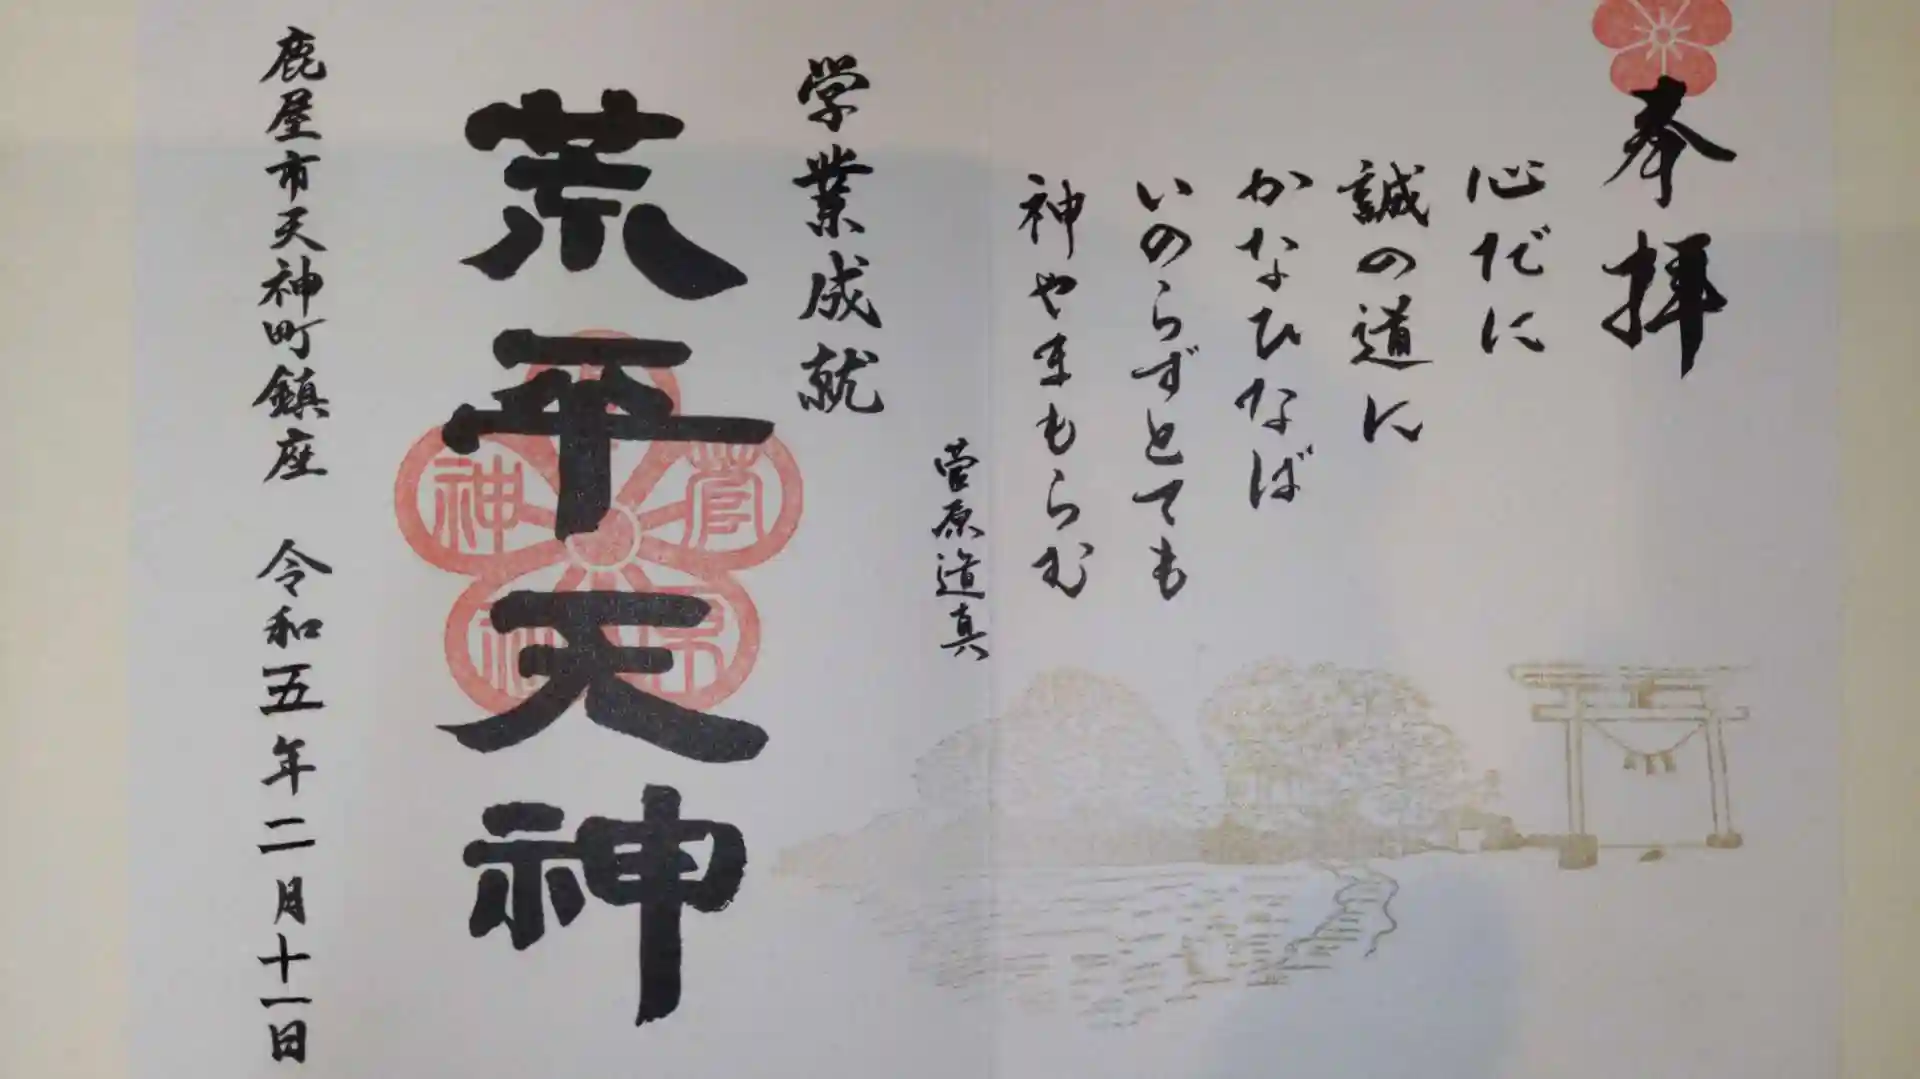 奉拝
心だに
誠の道に
かなひなば
いのらずとても
神やまもらむ
菅原道真
学業成就
荒平天神
鹿屋市天神町鎮座 令和五年二月十一日
菅
神